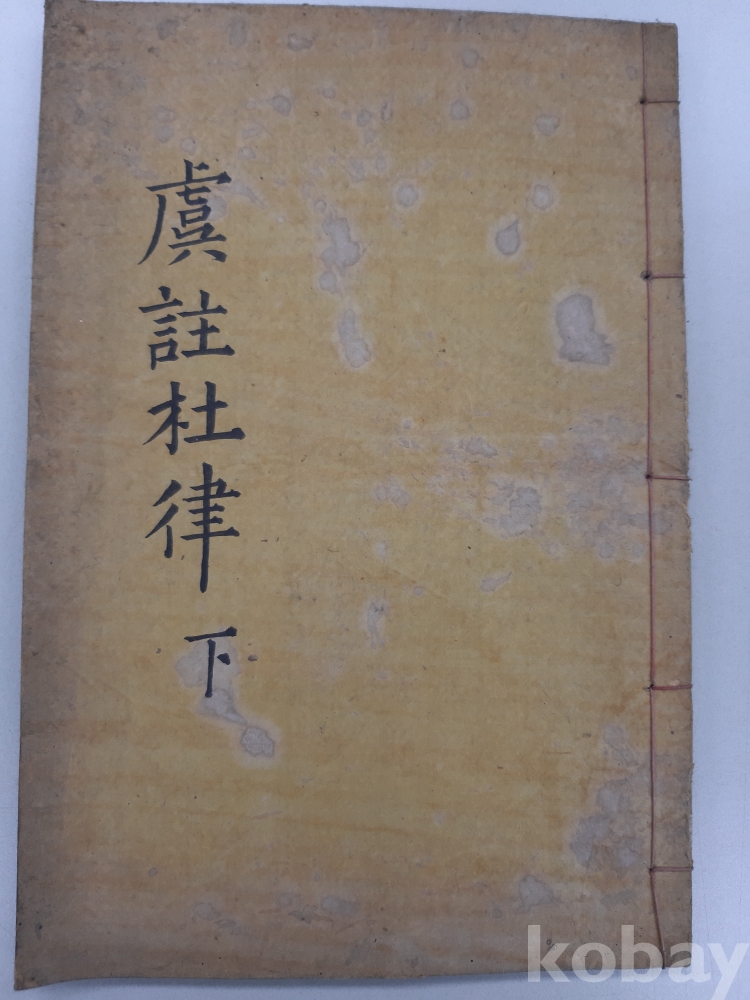 虞註杜律 下
kobay